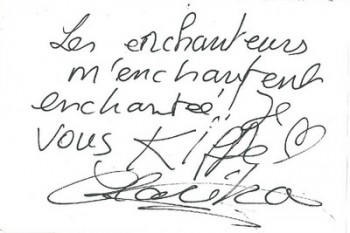 Les enchanteurs
m'enchantent
enchantée!! Je
vous Kiffe
Clarika